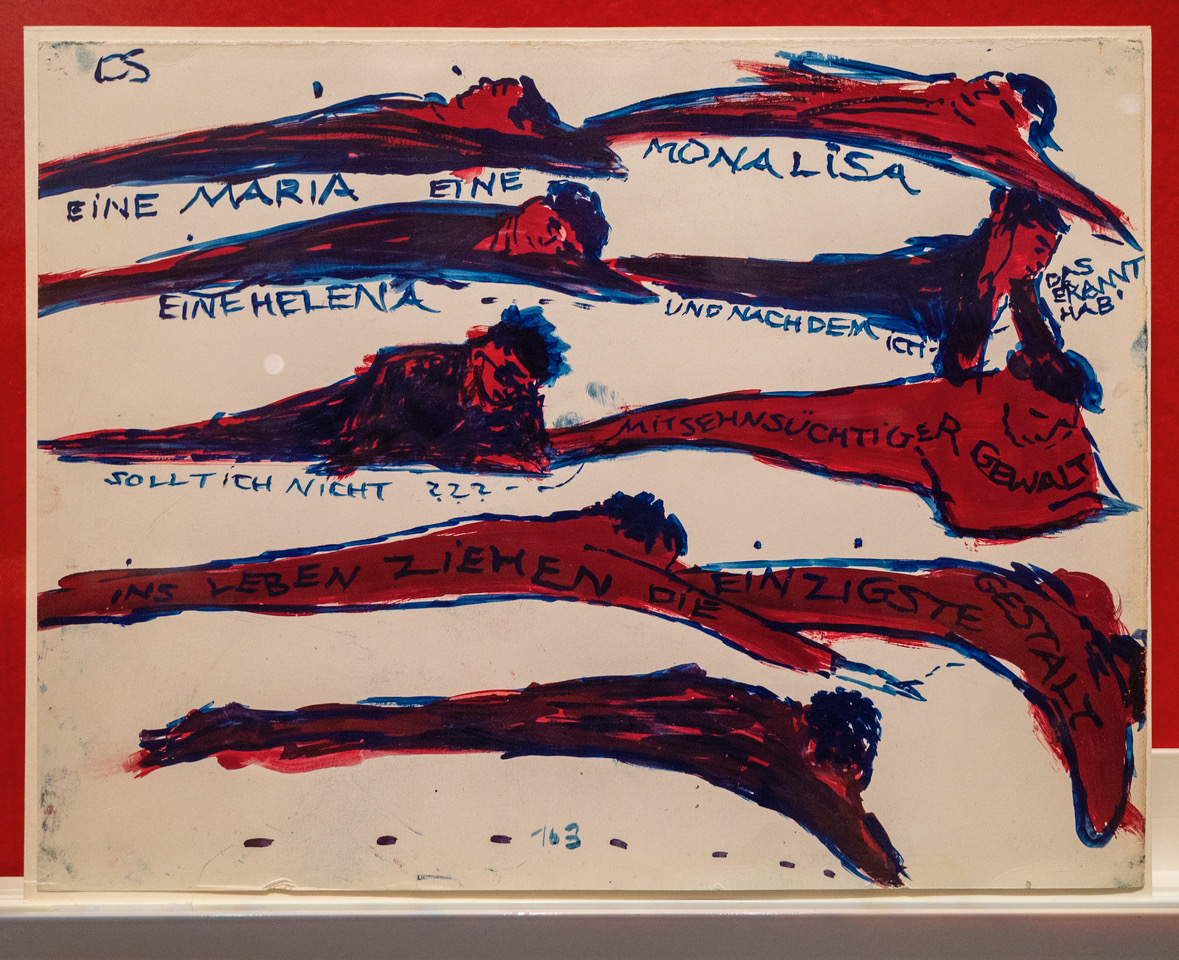 CS
EINE MARIA EINE MONALISA
EINE HELENA
UND NACHDEM ICH-
DAS
ERKANNT
HAB'
SOLLT ICH NICHT ??? - -
MIT SEHNSÜCHTIGER GEWALT
INS LEBEN ZIEHEN DIE EINZIGSTE GESTALT
163